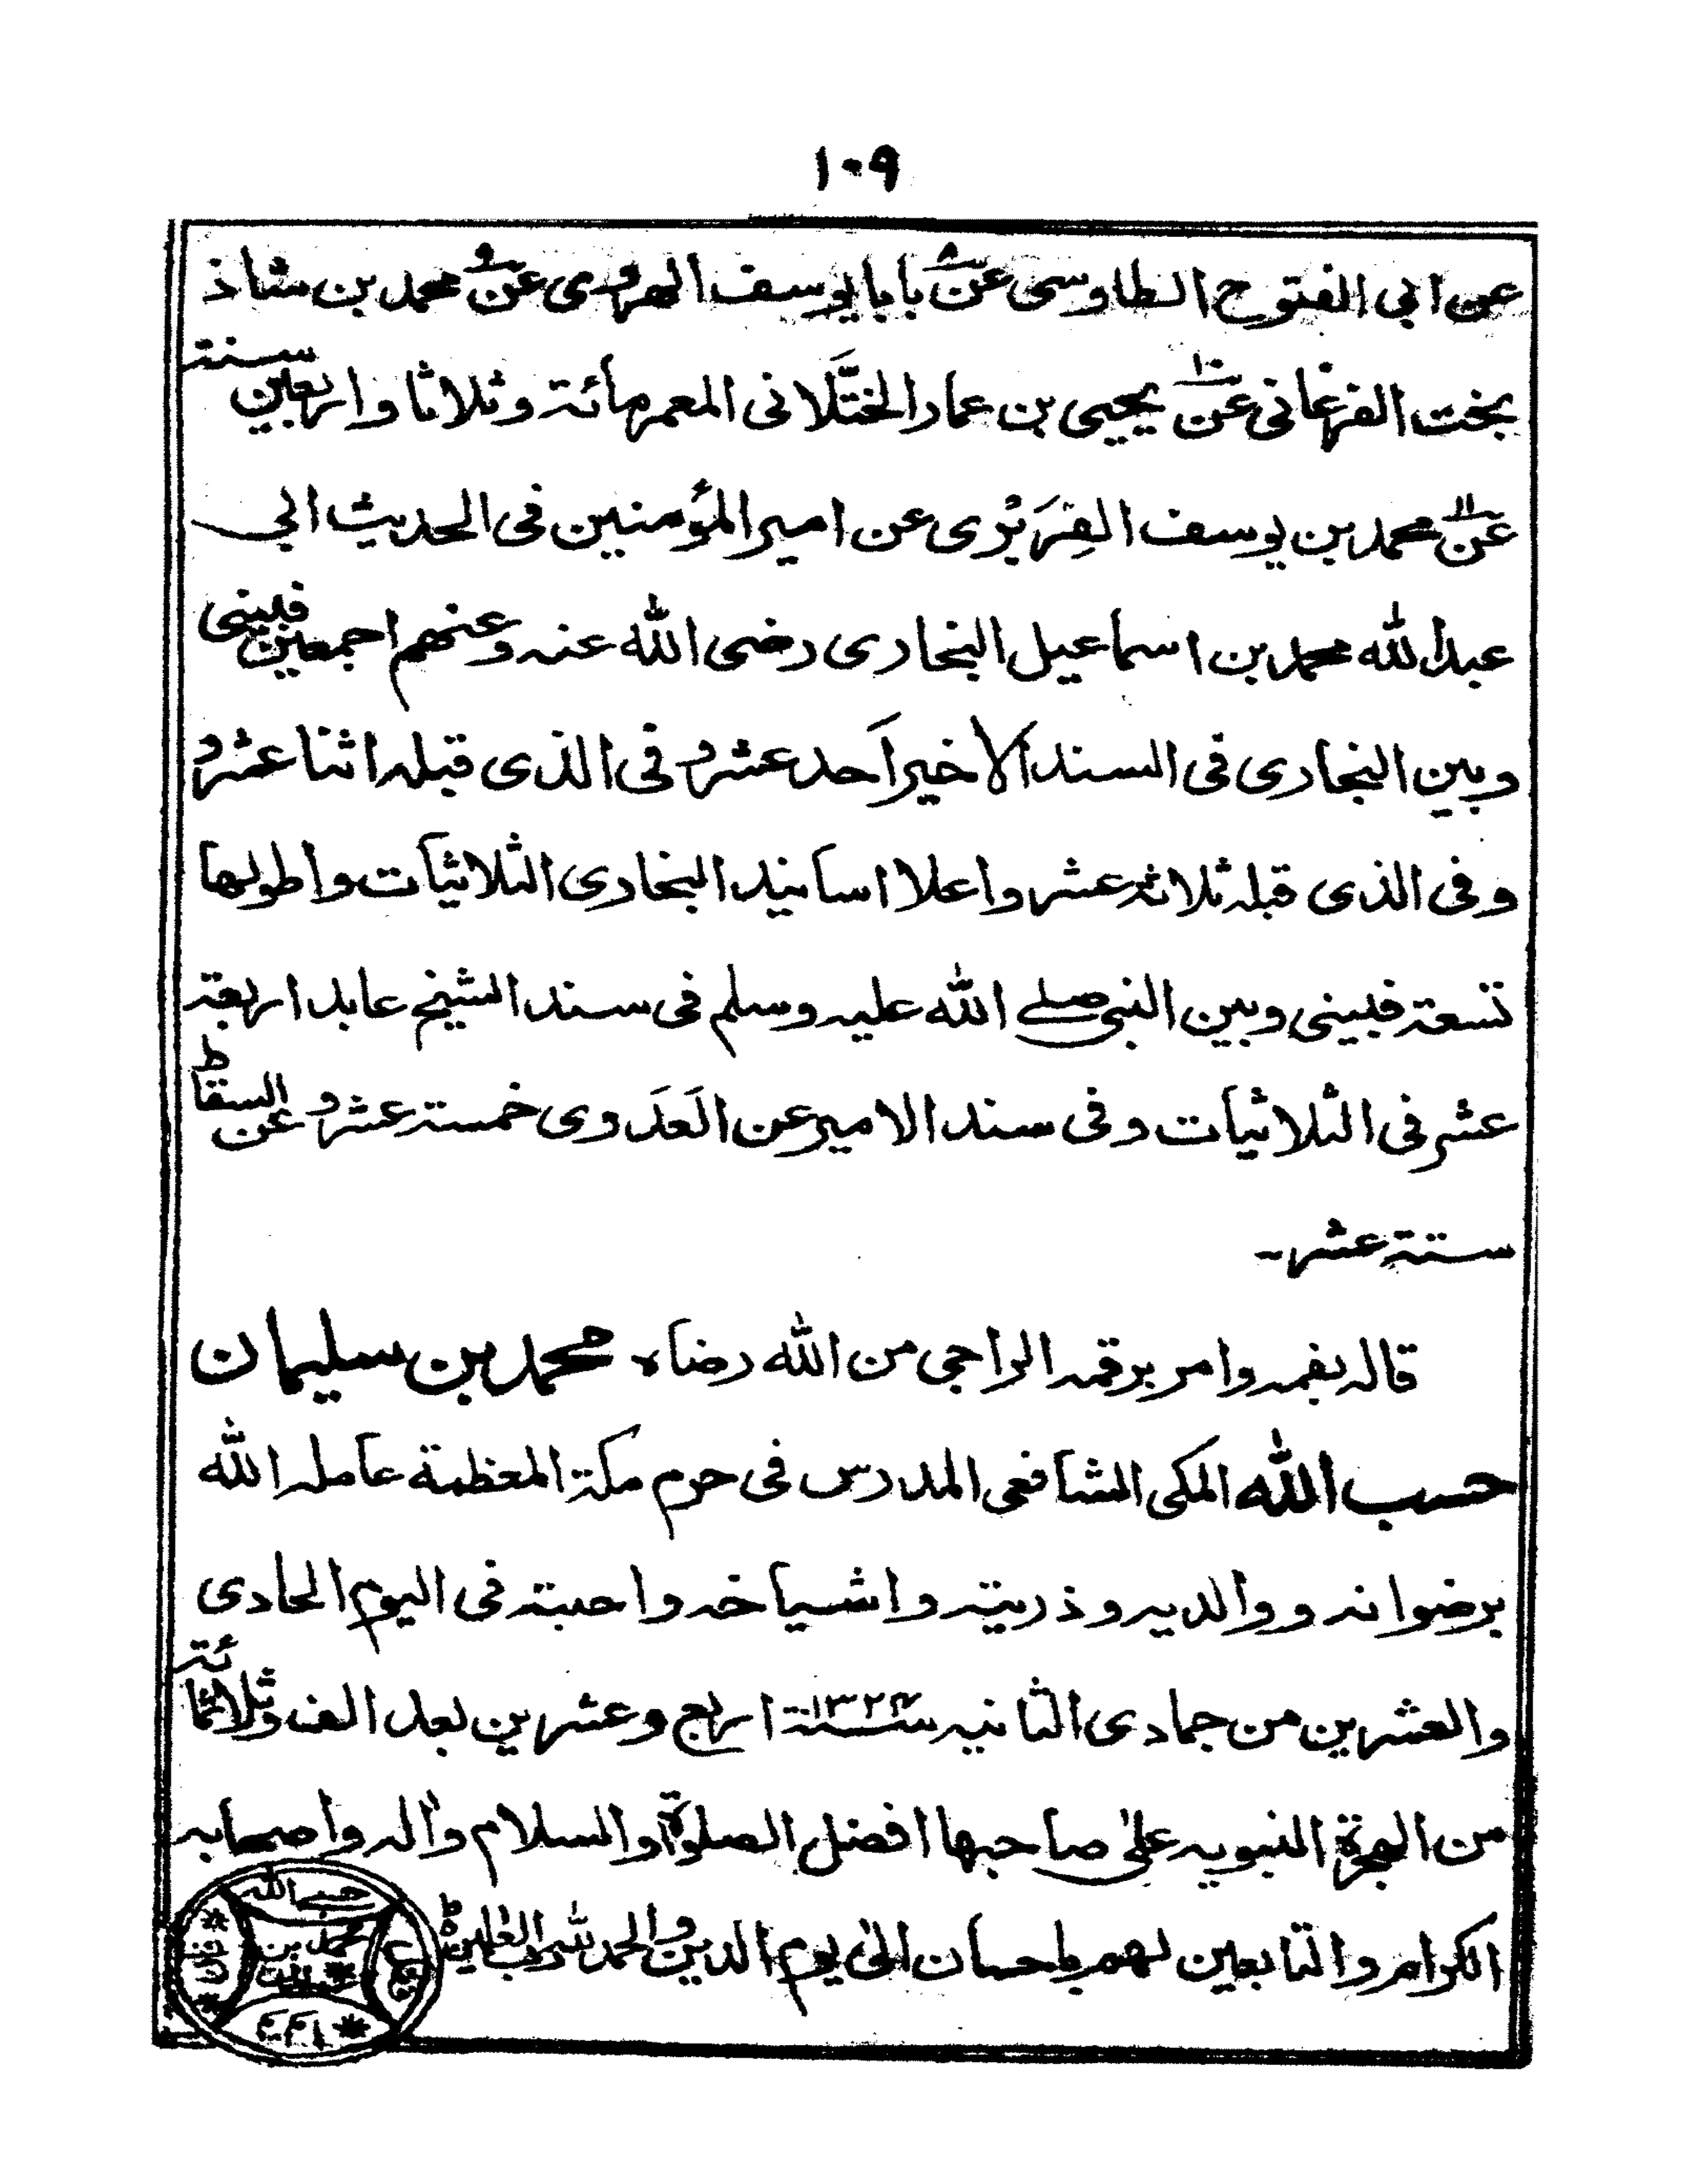 ١٠٩
عن ابى الفتوح الطاوسى عن٨ بابا يوسف الهروى عن٩ محمد بن شاذ
بخت الفرغانى عن١٠ يحيى بن عمار الختَّلانى المعمر مائة وثلاثا واربعين سنة
عن١١ محمد بن يوسف الفِرَبْرى عن امير المؤمنين فى الحديث ابى
عبد الله محمد بن اسماعيل البخارى رضى الله عنه وعنهم اجمعين فبينى
وبين البخارى فى السند الاخير اَحد عشر و فى الذى قبله اثنا عشر و
وفى الذى قبله ثلاثة عشر واعلا اسانيد البخارى الثلاثيات واطولها
تسعة فبينى وبين النبى صلے الله عليه وسلم فى سند الشيخ عابد اربعة
عشر فى الثلاثيات وفى سند الامير عن العَدَوى خمسة عشر و عن السقاط
ستة عشر ـ
قاله بفمه وامر برقمه الراجى من الله رضاه محمد بن سليمان
حسب الله المكى الشافعى المدرس فى حرم مكة المعظمة عامله الله
برضوانه و والديه و ذريته واشياخه واحبته فى اليوم الحادى
والعشرين من جمادى الثانيه سنة ١٣٢٤ اربع وعشرين بعد الف وثلاثمائة
من الهجرة النبويه علىٰ صاحبها افضل الصلوٰة والسلام واٰله واصحابه
الكرام والتابعين لهم باحسان الىٰ يوم الدين والحمد لله رب العٰلمين
حسب الله
محمد بن